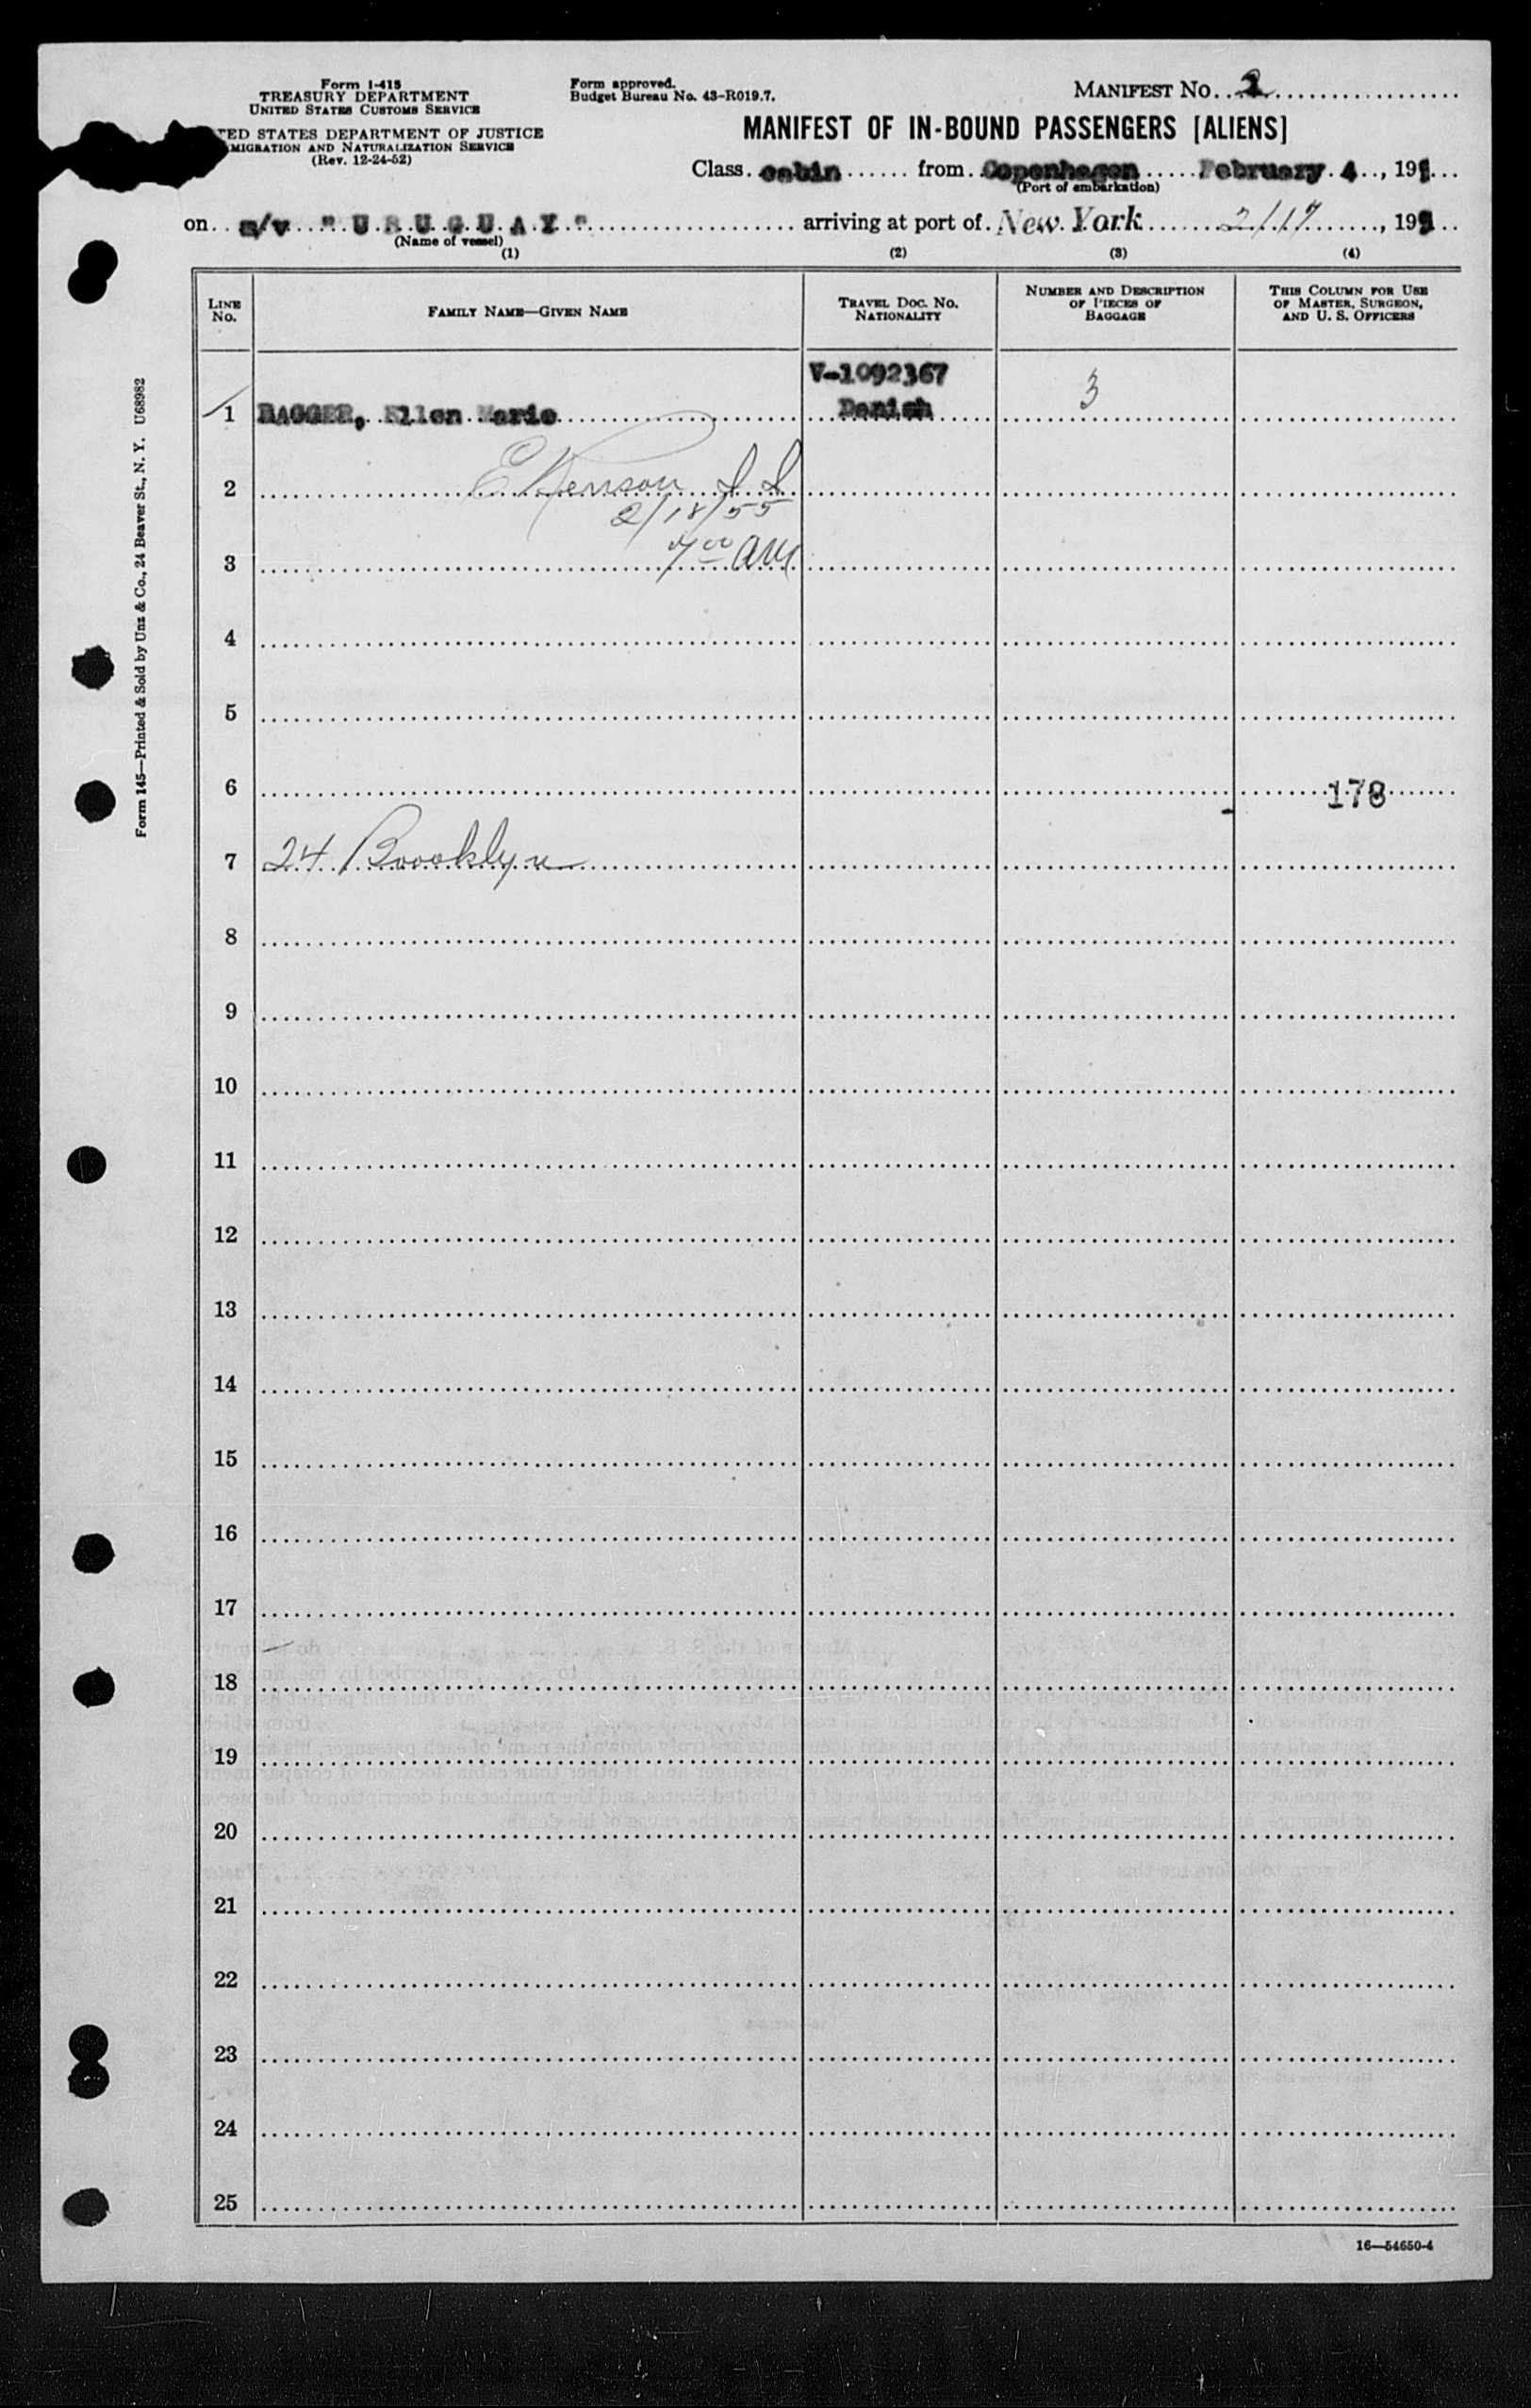 Form I-415
TREASURY DEPARTMENT
UNITED STATES CUSTOMS SERVICE
TED STATES DEPARTMENT OF JUSTICE
MIGRATION AND NATURALIZATION SERVICE
(Rev. 12-24-52)
Form approved.
Budget Bureau No. 43-R019.7.
MANIFEST No. 2
MANIFEST OF IN-BOUND PASSENGERS [ALIENS]
Class cabin from Copenhagen February 4, 195
(Port of embarkation)
on m/v "URUGUAY" arriving at port of New York 2/17, 195
(Name of vessel)
(1) (2) (3) (4)
LINE No. FAMILY NAME—GIVEN NAME TRAVEL DOC. NO. NATIONALITY NUMBER AND DESCRIPTION OF PIECES OF BAGGAGE THIS COLUMN FOR USE OF MASTER, SURGEON, AND U. S. OFFICERS
V-1092367
1 BAGGER, Ellen Marie Danish 3
2
2/18/55
3 7 00 AM
4
5
6 178
7 24 Brooklyn
8
9
10
11
12
13
14
15
16
17
18
19
20
21
22
23
24
25
16—54650-4
Form 145—Printed & Sold by Unz & Co., 24 Beaver St., N. Y. U68982